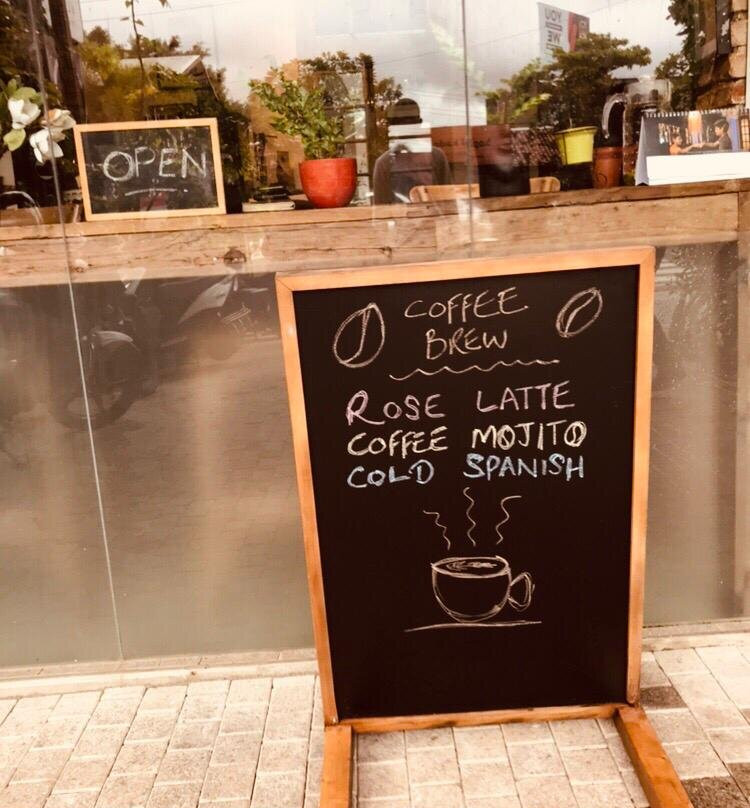 OPEN
COFFEE
BREW
ROSE LATTE
COFFEE MOJITO
COLD SPANISH